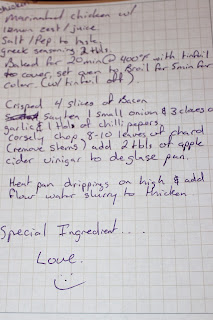 Marinated chicken w/
lemon zest/juice
Salt/Pep to high
greek seasoning 2 tbls.
Baked for 20min @ 400°F with tinfoil
to cover, set oven to Broil for 5min for
color. (w/ tinfoil off)
Crisped 4 slices of Bacon
Sauteu 1 small onion & 3 cloves of
garlic & 1 tbls of chilli papers.
Corsely chop 8-10 leaves of chard
(remove stems) add 2 tbls of apple
cider vinigar to deglase pan.
Heat pan drippings on high & add
flour water slurry to thicken
Special Ingredient....
Love.